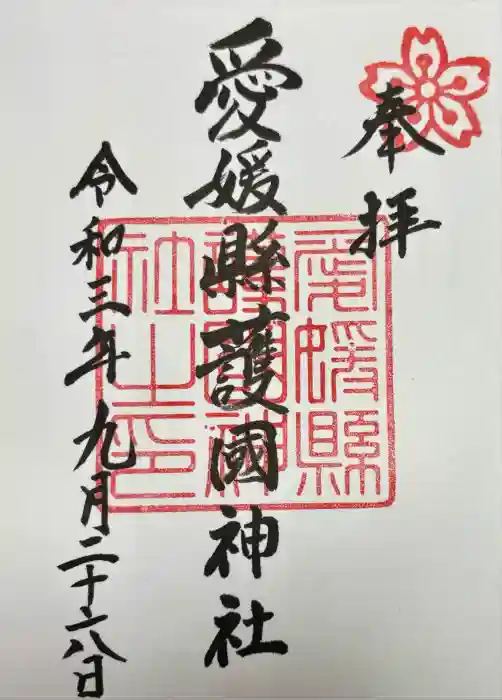 奉拝
愛媛縣護國神社
令和三年九月二十六日
愛媛縣
護國神
社之印